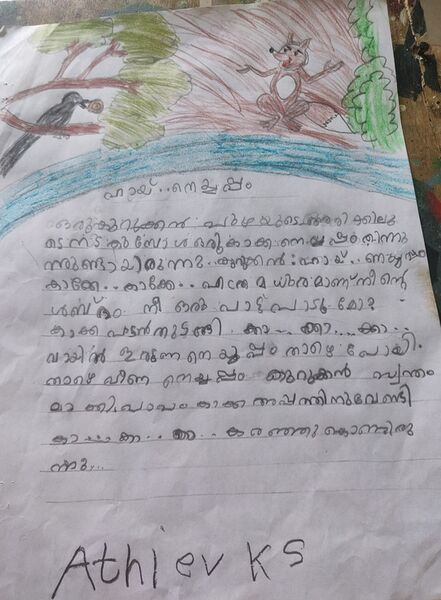 ഹായ്..നെയ്യപ്പം
ഒരു കുറുക്കൻ പുഴയുടെ അരികിലൂ
ടെ നടക്കുമ്പോൾ ഒരു കാക്ക നെയ്യപ്പം തിന്നു
ന്നുണ്ടായിരുന്നു.. കുറുക്കൻ: ഹായ്.. നെയ്യപ്പം
കാക്കേ.. കാക്കേ.. എത്ര മധുരമാണ് നിന്റെ
ശബ്ദം നീ ഒരു പാട്ട് പാടുമോ?
കാക്ക പാടൻ തുടങ്ങി. കാ... ക്കാ....ക്കാ..
വായിൽ ഇരുന്ന നെയ്യപ്പം താഴെ പോയി.
താഴെ വീണ നെയ്യപ്പം കുറുക്കൻ സ്വന്തം
മാക്കി പാവം കാക്ക അപ്പത്തിനുവേണ്ടി
കാ... കാ.. കാ.. കരഞ്ഞു കൊണ്ടിരു
ന്നു...
Athiev KS